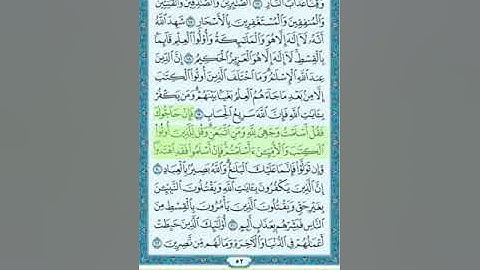 وَقِنَا عَذَابَ ٱلنَّارِ ١٦ ٱلصَّٰبِرِينَ وَٱلصَّٰدِقِينَ وَٱلْقَٰنِتِينَ
وَٱلْمُنفِقِينَ وَٱلْمُسْتَغْفِرِينَ بِٱلْأَسْحَارِ ١٧ شَهِدَ ٱللَّهُ
أَنَّهُۥ لَآ إِلَٰهَ إِلَّا هُوَ وَٱلْمَلَٰٓئِكَةُ وَأُو۟لُوا۟ ٱلْعِلْمِ قَآئِمًۢا
بِٱلْقِسْطِ لَآ إِلَٰهَ إِلَّا هُوَ ٱلْعَزِيزُ ٱلْحَكِيمُ ١٨ إِنَّ ٱلدِّينَ
عِندَ ٱللَّهِ ٱلْإِسْلَٰمُ وَمَا ٱخْتَلَفَ ٱلَّذِينَ أُوتُوا۟ ٱلْكِتَٰبَ
إِلَّا مِنۢ بَعْدِ مَا جَآءَهُمُ ٱلْعِلْمُ بَغْيًۢا بَيْنَهُمْ وَمَن يَكْفُرْ
بِـَٔايَٰتِ ٱللَّهِ فَإِنَّ ٱللَّهَ سَرِيعُ ٱلْحِسَابِ ١٩ فَإِنْ حَآجُّوكَ
فَقُلْ أَسْلَمْتُ وَجْهِىَ لِلَّهِ وَمَنِ ٱتَّبَعَنِ وَقُل لِّلَّذِينَ أُوتُوا۟
ٱلْكِتَٰبَ وَٱلْأُمِّيِّۦنَ ءَأَسْلَمْتُمْ فَإِنْ أَسْلَمُوا۟ فَقَدِ ٱهْتَدَوا۟
وَّإِن تَوَلَّوْا۟ فَإِنَّمَا عَلَيْكَ ٱلْبَلَٰغُ وَٱللَّهُ بَصِيرٌۢ بِٱلْعِبَادِ ٢٠
إِنَّ ٱلَّذِينَ يَكْفُرُونَ بِـَٔايَٰتِ ٱللَّهِ وَيَقْتُلُونَ ٱلنَّبِيِّـۧنَ
بِغَيْرِ حَقٍّ وَيَقْتُلُونَ ٱلَّذِينَ يَأْمُرُونَ بِٱلْقِسْطِ مِنَ
ٱلنَّاسِ فَبَشِّرْهُم بِعَذَابٍ أَلِيمٍ ٢١ أُو۟لَٰٓئِكَ ٱلَّذِينَ حَبِطَتْ
أَعْمَٰلُهُمْ فِى ٱلدُّنْيَا وَٱلْـَٔاخِرَةِ وَمَا لَهُم مِّن نَّٰصِرِينَ ٢٢
٥٢